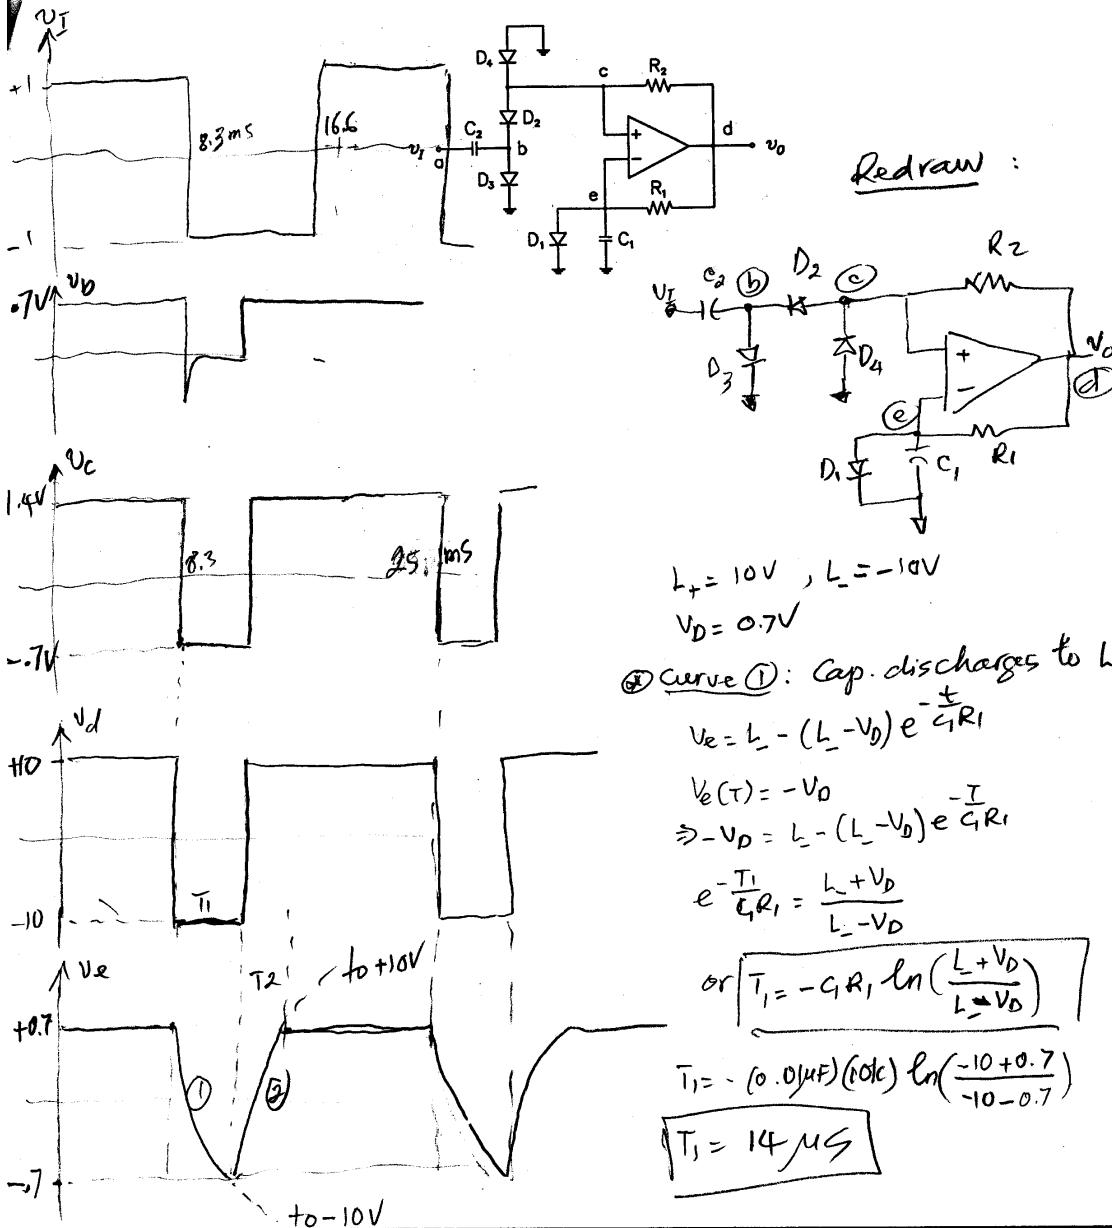 v_I
+1
8.3ms
16.6
-1
D4
C2
v_I
a
b
D2
D3
c
R2
d
v_O
+
-
e
R1
D1
C1
Redraw :
V_I
C2
b
D2
c
R2
D3
D4
+
-
V_o
d
e
D1
C1
R1
.7V
v_b
v_c
1.4V
8.3
25. ms
-.7V
v_d
+10
T1
-10
v_e
T2
to +10V
+0.7
1
2
-.7
to -10V
L+ = 10V , L- = -10V
V_D = 0.7V
* Curve ① : Cap. discharges to L
V_e = L- - (L- - V_D) e^{-t/C1R1}
V_e(T) = -V_D
⇒ -V_D = L- - (L- - V_D) e^{-T/C1R1}
e^{-T1/C1R1} = (L- + V_D)/(L- - V_D)
or T1 = -C1R1 ln((L- + V_D)/(L- - V_D))
T1 = -(0.01μF)(10k) ln((-10+0.7)/(-10-0.7))
T1 = 14 μS